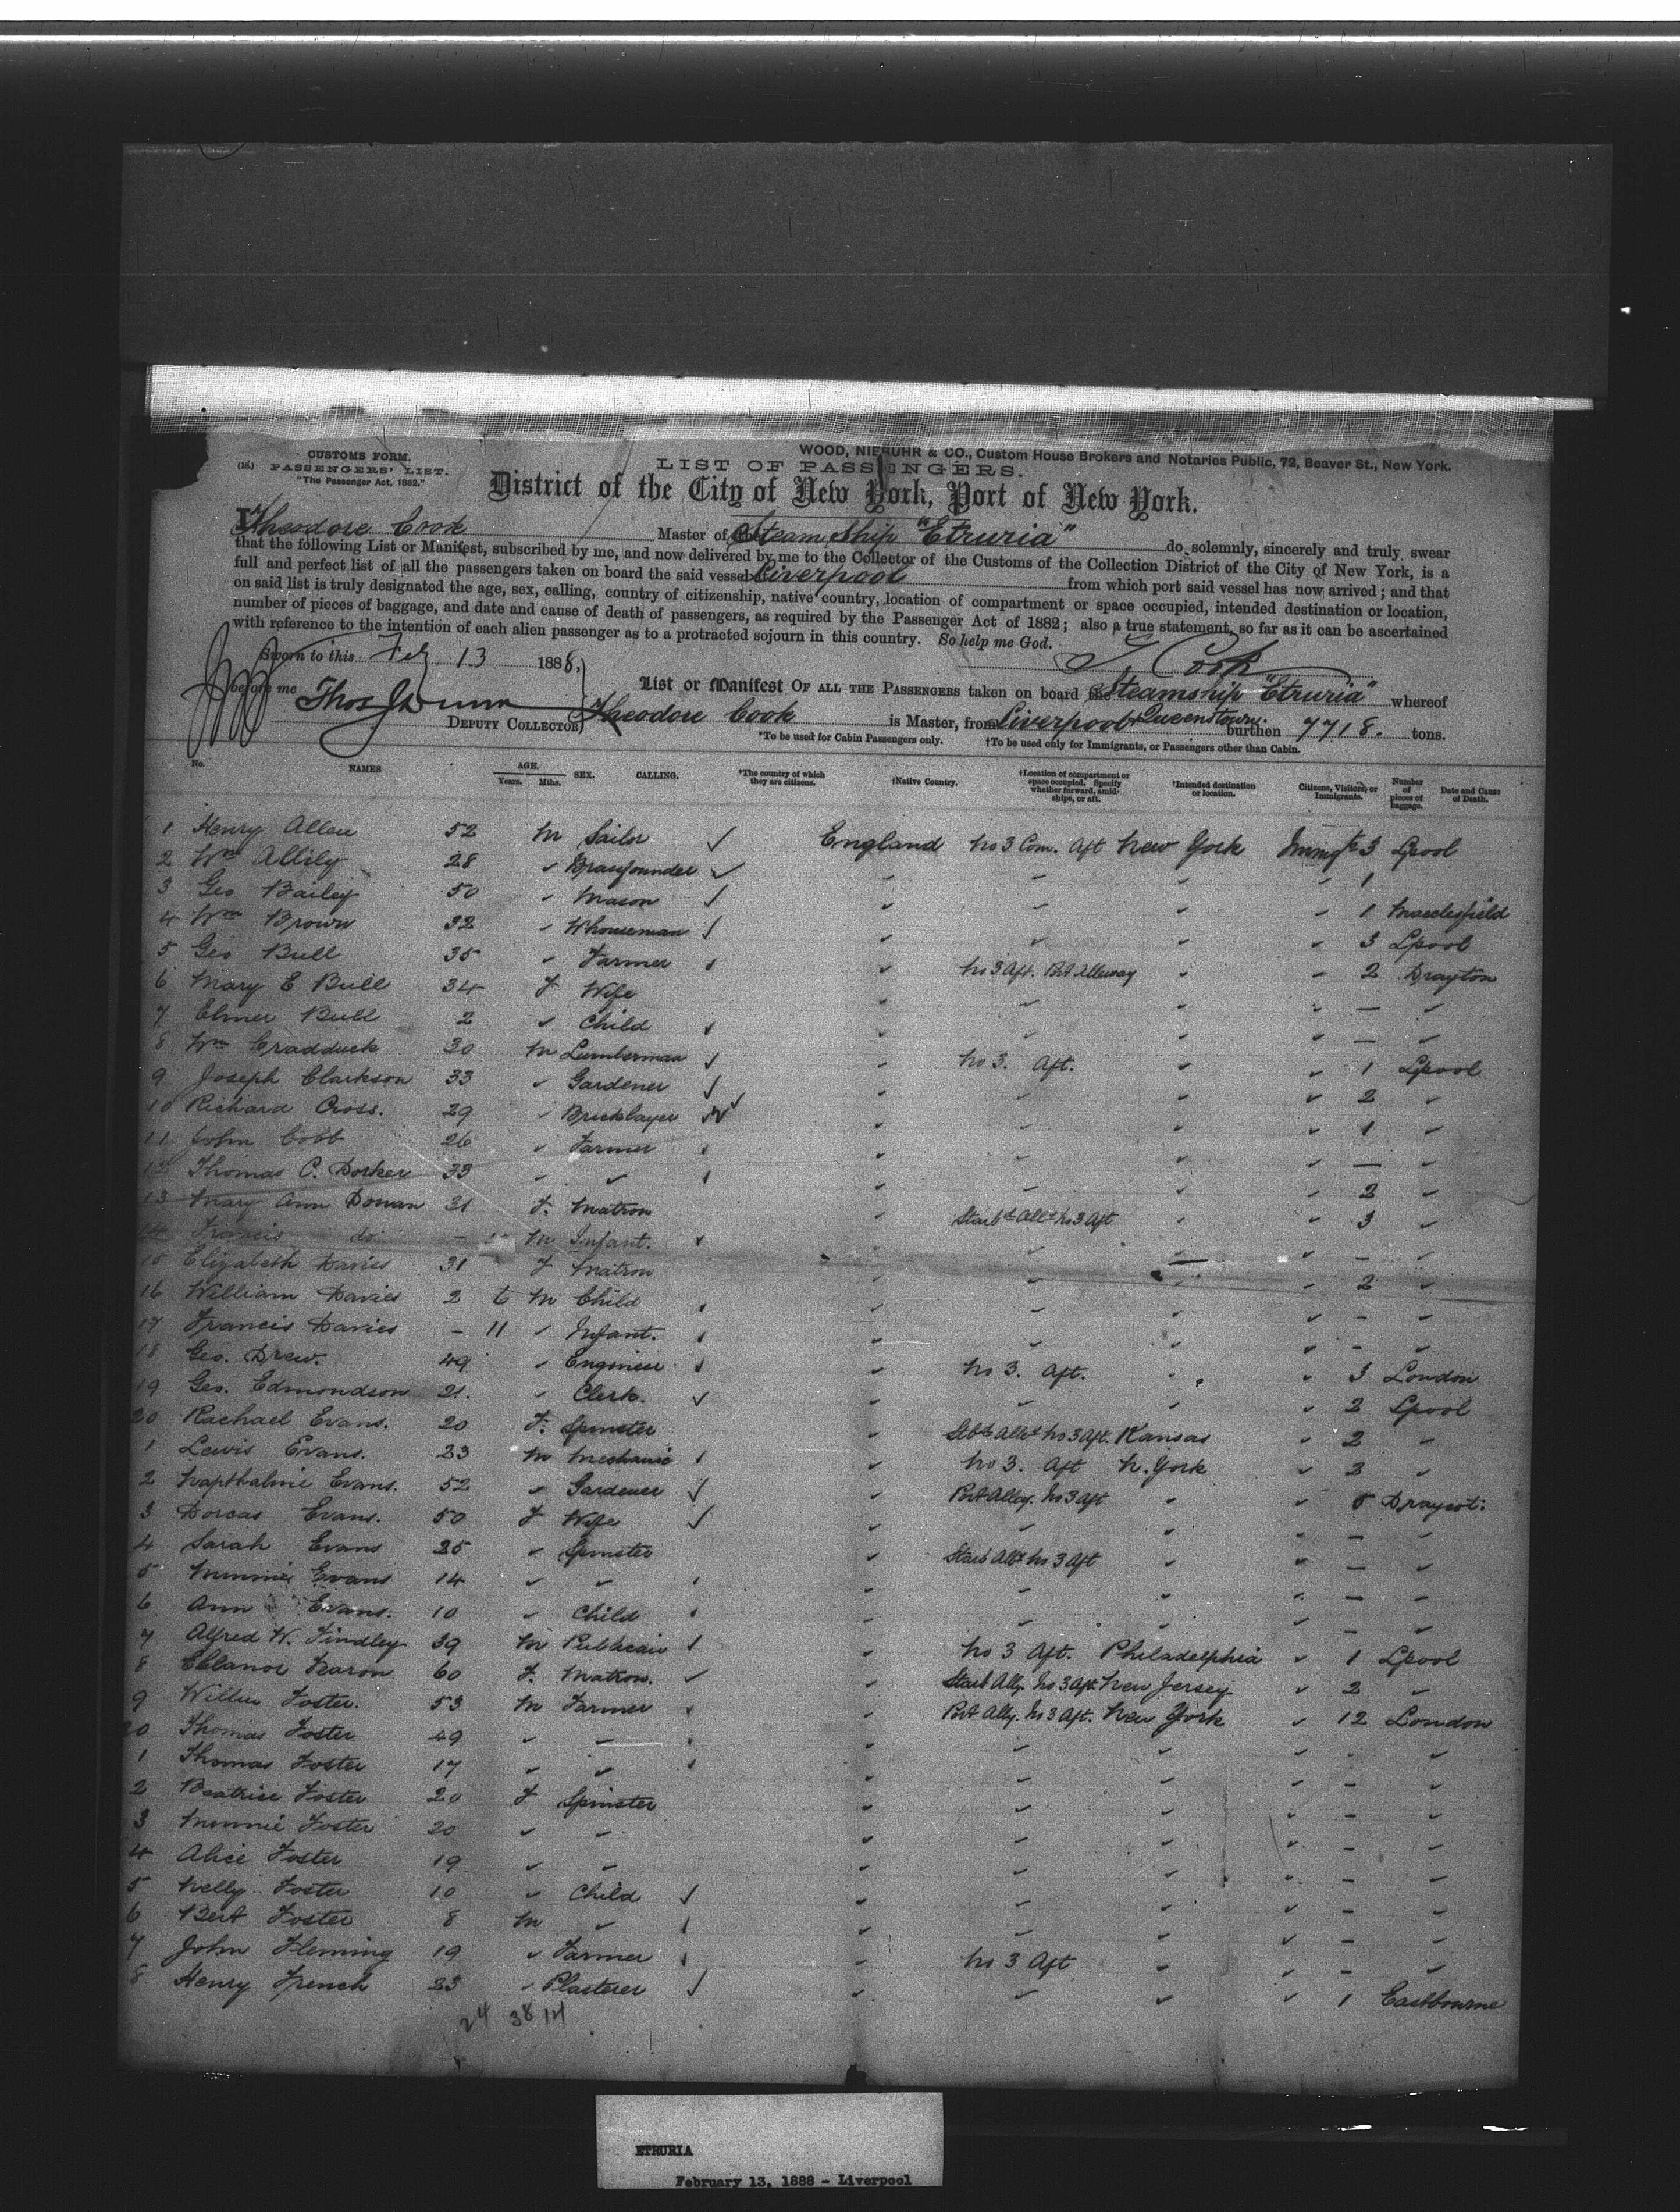 WOOD, NIEBUHR & CO., Custom House Brokers and Notaries Public, 72, Beaver St., New York.
CUSTOMS FORM.
(16.) PASSENGERS' LIST.
"The Passenger Act, 1882."
LIST OF PASSENGERS.
District of the City of New York, Port of New York.
I Theodore Cook Master of Steam Ship "Etruria" do solemnly, sincerely and truly swear
that the following List or Manifest, subscribed by me, and now delivered by me to the Collector of the Customs of the Collection District of the City of New York, is a
full and perfect list of all the passengers taken on board the said vessel Liverpool from which port said vessel has now arrived; and that
on said list is truly designated the age, sex, calling, country of citizenship, native country, location of compartment or space occupied, intended destination or location,
number of pieces of baggage, and date and cause of death of passengers, as required by the Passenger Act of 1882; also a true statement, so far as it can be ascertained
with reference to the intention of each alien passenger as to a protracted sojourn in this country. So help me God.
Sworn to this Feb 13 1888, T Cook
before me Thos J Dunn
DEPUTY COLLECTOR,
List or Manifest OF ALL THE PASSENGERS taken on board the Steamship "Etruria" whereof
Theodore Cook is Master, from Liverpool & Queenstown. burthen 7718. tons.
*To be used for Cabin Passengers only. †To be used only for Immigrants, or Passengers other than Cabin.
No. NAMES AGE. Years. Mths. SEX. CALLING. *The country of which they are citizens. †Native Country. †Location of compartment or space occupied. Specify whether forward, amidships, or aft. †Intended destination or location. Citizens, Visitors, or Immigrants. Number of pieces of baggage. Date and Cause of Death.
1 Henry Allen 52 M Sailor ✓ England No 3 Com. Aft New York Immgt 3 Lpool
2 Wm Allily 28 " Brassfounder ✓ " " " " 1
3 Geo Bailey 50 " Mason ✓ " " " " 1 Macclesfield
4 Wm Brown 32 " Whouseman ✓ " " " " 3 Lpool
5 Geo Bull 35 " Farmer " No 3 Aft. Port Alleway " " 2 Drayton
6 Mary E Bull 34 F Wife " " " " — "
7 Elmer Bull 2 " Child " " " " — "
8 Wm Cradduck 30 M Lumberman " No 3. Aft. " " 1 Lpool
9 Joseph Clarkson 33 " Gardener ✓ " " " " 2 "
10 Richard Cross. 29 " Bricklayer ✓ " " " " 1 "
11 John Cobb 26 " Farmer " " " " — "
12 Thomas C. Dorker 33 " " " " " " 2 "
13 Mary Ann Donan 31 F. Matron " Starbd Allt No 3 Aft " " 3 "
14 Francis do M Infant. " " " " - "
15 Elizabeth Davies 31 F Matron " " " " 2 "
16 William Davies 2 6 M Child " " " " - "
17 Francis Davies - 11 " Infant. " " " " - "
18 Geo. Drew. 49 " Engineer " No 3. Aft. " " 3 London
19 Geo. Edmondson 21. " Clerk. ✓ " " " " 2 Lpool
20 Rachael Evans. 20 F. Spinster " Stbd Allt No 3 Aft. Kansas " 2 "
1 Lewis Evans. 23 M Mechanic " No 3. Aft N. York " 2 "
2 Napthalnie Evans. 52 " Gardener ✓ " Port Alley. No 3 Aft " " 5 Draycot.
3 Dorcas Evans. 50 F Wife ✓ " " " " — "
4 Sarah Evans 25 " Spinster " Starb Allt No 3 Aft " " — "
5 Minnie Evans 14 " " " " " " — "
6 Ann Evans. 10 " Child " " " " — "
7 Alfred W. Findley 39 M Publican " No 3 Aft. Philadelphia " 1 Lpool
8 Ellanor Fearon 60 F. Matron. ✓ " Starb Ally. No 3 Aft. New Jersey " 2 "
9 Foster. 53 M Farmer " Port Ally. No 3 Aft. New York " 12 London
30 Thomas Foster 49 " " " " " " - "
1 Thomas Foster 17 " " " " " " - "
2 Beatrice Foster 20 F Spinster " " " " - "
3 Minnie Foster 20 " " " " " " - "
4 Alice Foster 19 " " " " " " - "
5 Nelly Foster 10 " Child ✓ " " " " - "
6 Bert Foster 8 M " " " " " - "
7 John Fleming 19 " Farmer " No 3 Aft " " - "
8 Henry French 23 " Plasterer ✓ " " " " 1 Eastbourne
24 38 14
ETRURIA
February 13, 1888 - Liverpool